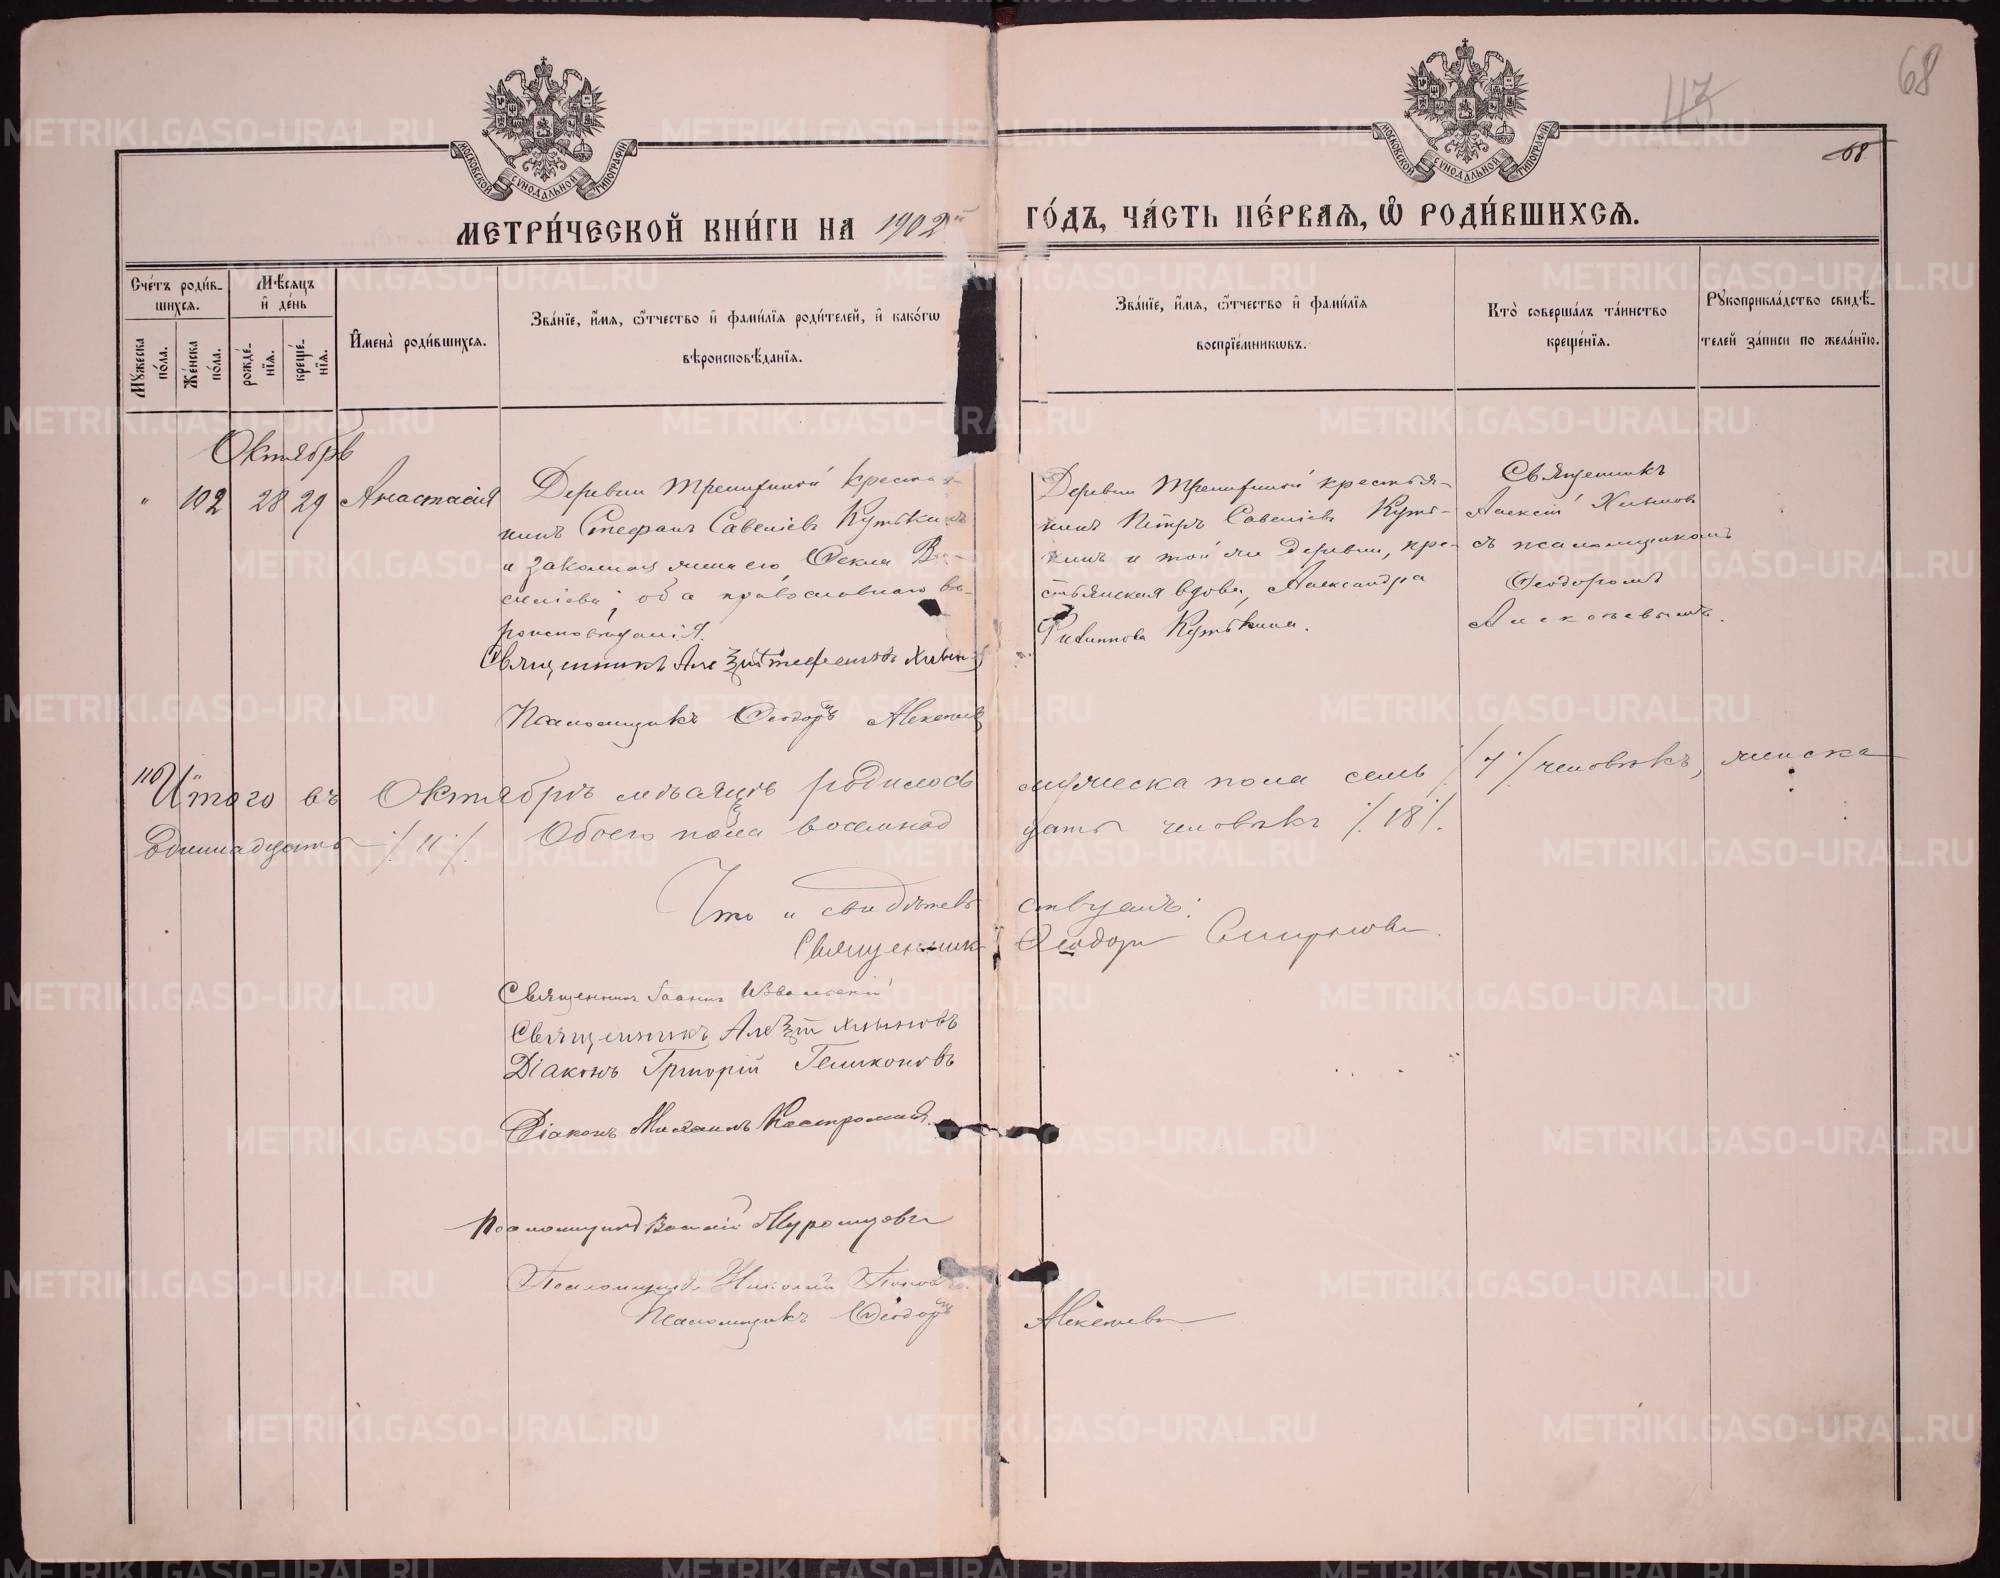 68
113
68
МОСКОВСКОЙ СѴНОДАЛЬНОЙ ТИПОГРАФІИ
МОСКОВСКОЙ СѴНОДАЛЬНОЙ ТИПОГРАФІИ
МЕТРИ́ЧЕСКОЙ КНИ́ГИ НА 1902й ГО́ДЪ, ЧА́СТЬ ПЕ́РВАѦ, Ѡ҆ РОДИ́ВШИХСѦ.
Сче́тъ роди́в-
шихсѧ.
Мѣ́сяцъ
и҆ де́нь
Мꙋ́жеска по́ла.
Же́нска по́ла.
рожде́-
нїѧ.
креще́-
нїѧ.
И҆мена̀ роди́вшихсѧ.
Зва́нїе, и҆́мѧ, ѻ҆́тчество и҆ фами́лїѧ роди́телей, и҆ како́гѡ
вѣроисповѣ́данїѧ.
Зва́нїе, и҆́мѧ, ѻ҆́тчество и҆ фами́лїѧ
воспрїе́мникѡвъ.
Кто̀ соверша́лъ та́инство
креще́нїѧ.
Рꙋкоприкла́дство свидѣ́-
телей за́писи по жела́нїю.
Октябрь
" 102 28 29 Анастасія
Деревни крестья-
нинъ Стефанъ Савеліевъ Кутькинъ
и законная жена его Ѳекла
оба православнаго вѣ-
роисповѣданія.
Священникъ Хлыновъ
Псаломщикъ Ѳеодоръ Алексѣевъ
Деревни крестья-
нинъ Петръ Савеліевъ Куть-
кинъ и той же деревни, кре-
стьянская вдова, Александра
Филиппова Кутькина.
Священникъ
Алексій Хлыновъ
съ псаломщикомъ
Ѳеодоромъ
Алексѣевымъ.
Итого въ Октябрѣ мѣсяцѣ родилось мужеска пола семь /7/ человѣкъ, женска
одиннадцать /11/. Обоего пола восемнадцать человѣкъ /18/.
Что и свидѣтельствуемъ:
Священникъ Ѳеодоръ Смирновъ.
Священникъ Іоаннъ
Священникъ Алексій Хлыновъ
Діаконъ Григорій Геликоновъ
Діаконъ Михаилъ Костроминъ.
Псаломщикъ Василій Муромцовъ
Псаломщикъ Николай Поповъ.
Псаломщикъ Ѳеодоръ Алексѣевъ
METRIKI.GASO-URAL.RU